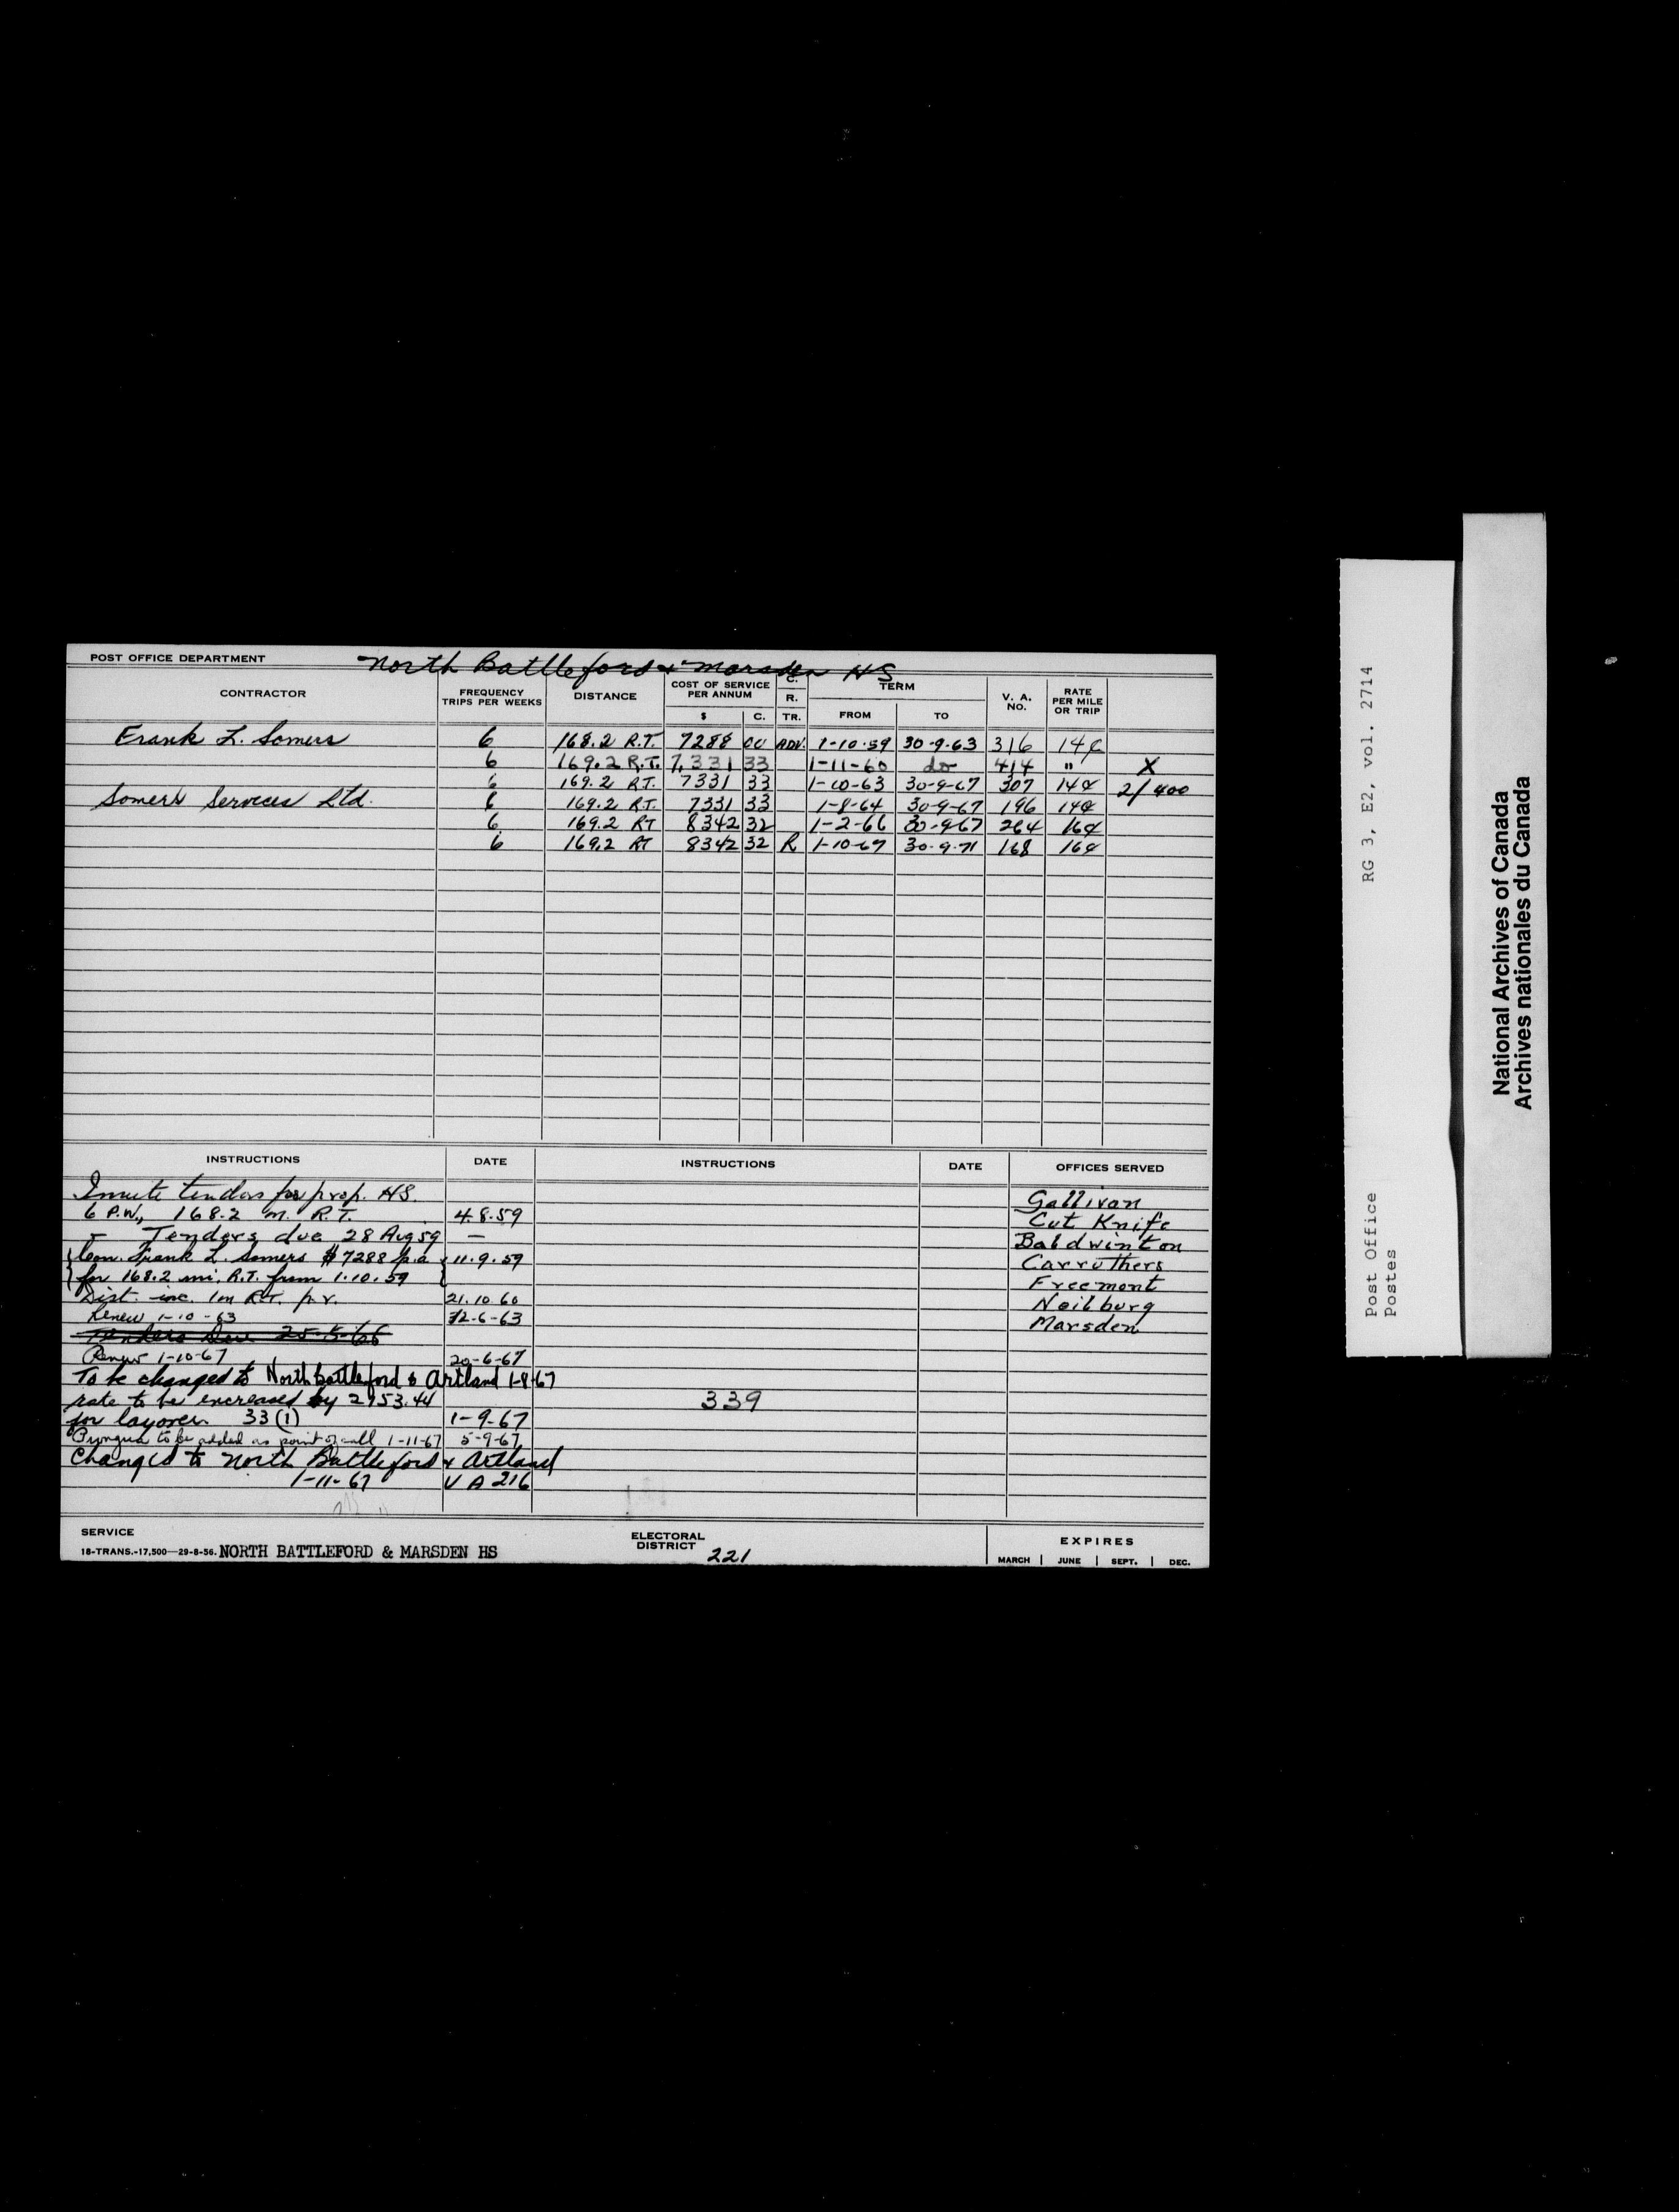 POST OFFICE DEPARTMENT North Battleford & Marsden HS
CONTRACTOR FREQUENCY TRIPS PER WEEKS DISTANCE COST OF SERVICE PER ANNUM $ C. C. R. TR. TERM FROM TO V. A. NO. RATE PER MILE OR TRIP
Frank L. Somers 6 168.2 R.T. 7288 00 ADV. 1-10-59 30-9-63 316 14¢
6 169.2 R.T. 7,331 33 1-11-60 do 414 " X
6 169.2 R.T. 7331 33 1-10-63 30-9-67 307 14¢ 2/400
Somers Services Ltd. 6 169.2 R.T. 7331 33 1-8-64 30-9-67 196 14¢
6 169.2 RT 8342 32 1-2-66 30-9-67 264 16¢
6 169.2 RT 8342 32 R 1-10-67 30-9-71 168 16¢
INSTRUCTIONS DATE INSTRUCTIONS DATE OFFICES SERVED
Invite tenders for prop. HS. Gallivan
6 P.W., 168.2 m. R.T. 4.8.59 Cut Knife
- Tenders due 28 Aug 59 — Baldwinton
Con. Frank L. Somers $7288 p.a. 11.9.59 Carruthers
for 168.2 mi. R.T. from 1.10.59 Freemont
Dist. inc. 1m R.T. p.r. 21.10.60 Neilburg
Renew 1-10-63 12-6-63 Marsden
Tenders Due 25-5-66
Renew 1-10-67 20-6-67
To be changed to North Battleford & Artland 1-8-67
rate to be increased by 2953.44 339
for layover 33 (1) 1-9-67
to be added as point of call 1-11-67 5-9-67
Changed to North Battleford & Artland
1-11-67 V A 216
SERVICE
18-TRANS.-17,500—29-8-56. NORTH BATTLEFORD & MARSDEN HS
ELECTORAL DISTRICT 221
EXPIRES
MARCH | JUNE | SEPT. | DEC.
RG 3, E2, vol. 2714
Post Office
Postes
National Archives of Canada
Archives nationales du Canada